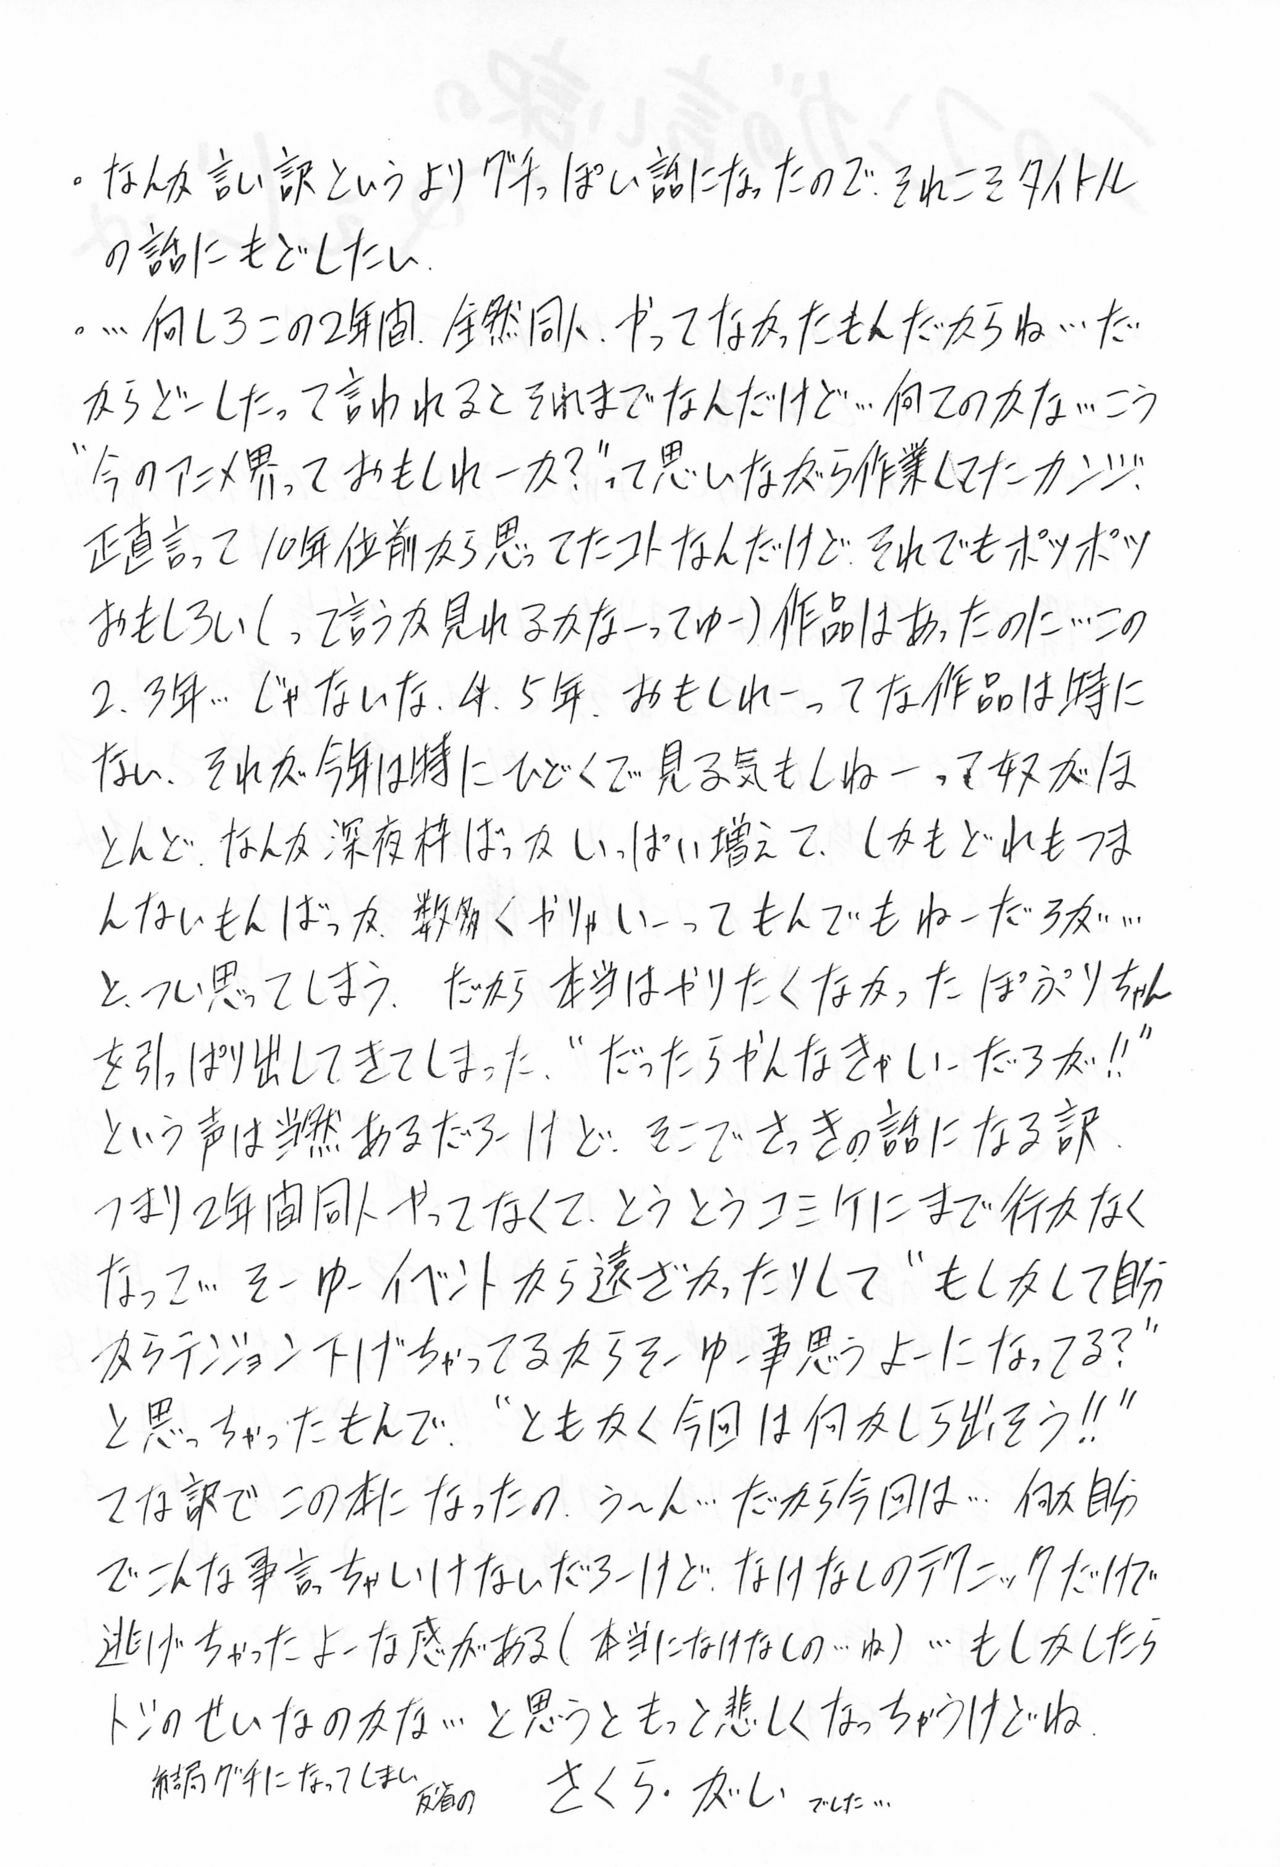 ・なんか言い訳というよりグチっぽい話になったので、それこそタイトル
の話にもどしたい.
・…何しろこの2年間、全然同人、やってなかったもんだからね…だ
からどーしたって言われるとそれまでなんだけど…何てのかな…こう
"今のアニメ界っておもしれーか?"って思いながら作業してたカンジ、
正直言って10年位前から思ってたコトなんだけど、それでもポツポツ
おもしろい(って言うか見れるかなーってゆー)作品はあったのに…この
2、3年…じゃないな、4、5年、おもしれーってな作品は特に
ない、それが今年は特にひどくて見る気もしねーって奴がほ
とんど、なんか深夜枠ばっかいっぱい増えて、しかもどれもつま
んないもんばっか、数多くやりゃいーってもんでもねーだろが…
と、つい思ってしまう、だから本当はやりたくなかったぽぷりちゃん
を引っぱり出してきてしまった、"だったらやんなきゃいーだろが!!"
という声は当然あるだろーけど、そこでさっきの話になる訳.
つまり2年間同人やってなくて、とうとうコミケにまで行かなく
なって…そーゆーイベントから遠ざかったりして"もしかして自分
からテンション下げちゃってるからそーゆー事思うよーになってる?"
と思っちゃったもんで、"ともかく今回は何かしら出そう!!"
てな訳でこの本になったの、う〜ん…だから今回は…何か自分
でこんな事言っちゃいけないだろーけど、なけなしのテクニックだけで
逃げちゃったよーな感がある(本当になけなしの…ね)…もしかしたら
トシのせいなのかな…と思うともっと悲しくなっちゃうけどね.
結局グチになってしまい
反省の
さくら・がしい でした…